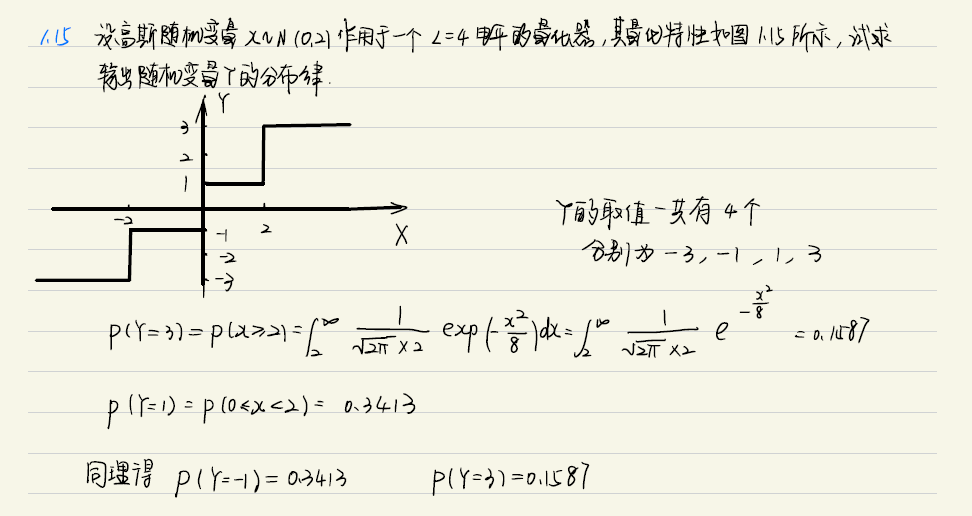 1.15 设高斯随机变量 X~N(0,2)作用于一个 L=4 电平的量化器,其量化特性如图1.15所示,试求
输出随机变量Y的分布律.
Y
3
2
1
-2
2
X
-1
-2
-3
Y的取值一共有 4个
分别为 -3, -1, 1, 3
P(Y=3)=P(x≥2)=∫₂^∞ 1/(√2π ×2) exp(-x²/8)dx=∫₂^∞ 1/(√2π ×2) e^(-x²/8) =0.1587
P(Y=1)=P(0≤x<2)= 0.3413
同理得 P(Y=-1)=0.3413 P(Y=3)=0.1587